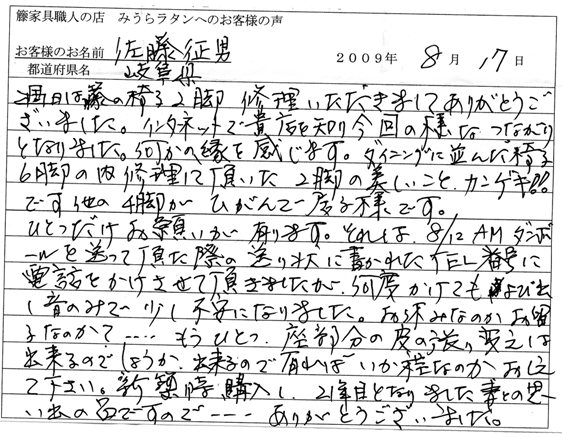 籐家具職人の店 みうらラタンへのお客様の声
お客様のお名前 佐藤征男 2009年 8月17日
都道府県名 岐阜県
過日は藤の椅子2脚修理いただきましてありがとうご
ざいました。インタネットで貴店を知り今回の様なつながり
となりました。何かの縁を感じます。ダイニングに並んだ椅子
6脚の内修理して頂いた2脚の美しいこと、カンゲキ!!
です他の4脚がひがんで居る様です。
ひとつだけお願いが有ります。それは、8/12 AMダンボ
ールを送って頂た際の送り状に書かれたTEL番号に
電話をかけさせて頂きましたが、何度かけてもよび出
し音のみで少し不安になりました。お休みなのかお留
るなのかて---- もうひとつ、座部分の皮の張り変えは
出来るのでしょうか、出来るので有ればいか程なのかおしえ
て下さい。新築時購入し、21年目となりました妻との思
い出の品ですので---- ありがとうございました。